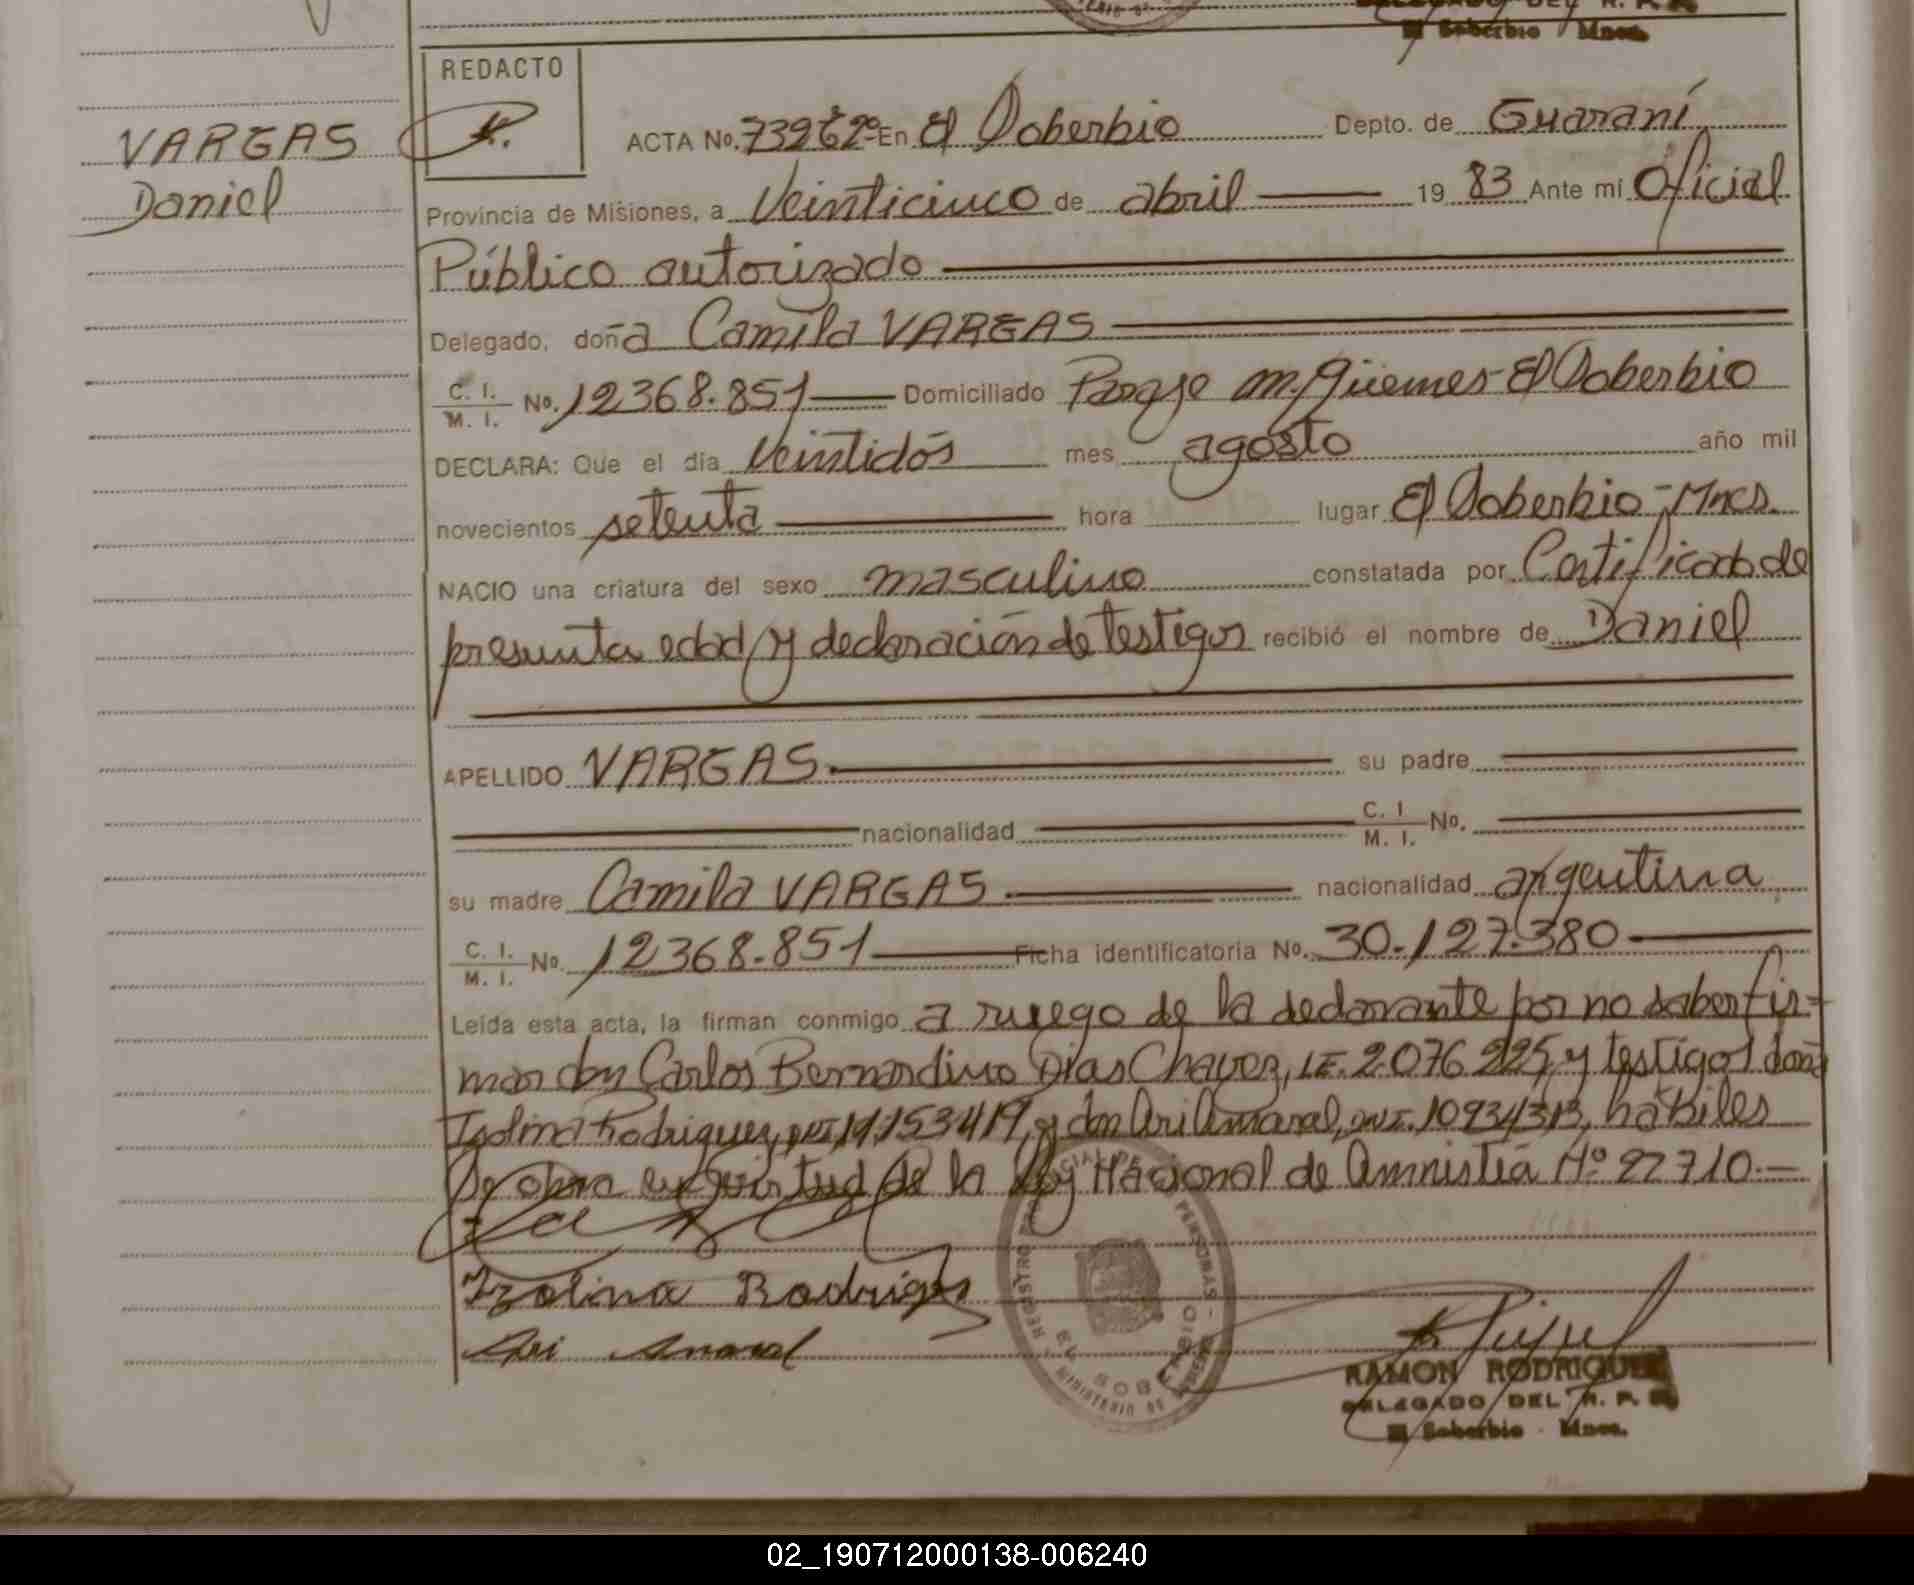 DELEGADO DEL R. P.
El Soberbio Mnes.
REDACTO
VARGAS
Daniel
ACTA No. 739 En El Soberbio Depto. de Guaraní
Provincia de Misiones, a Veinticinco de abril 19 83 Ante mí Oficial
Público autorizado
Delegado, doña Camila VARGAS
C. I.
M. I. No. 12368.851 Domiciliado Paraje M. Güemes - El Soberbio
DECLARA: Que el día Veintidós mes agosto año mil
novecientos setenta hora lugar El Soberbio - Mnes.
NACIO una criatura del sexo masculino constatada por Certificado de
presunta edad y declaración de testigos recibió el nombre de Daniel
APELLIDO VARGAS su padre
nacionalidad C. I.
M. I. No.
su madre Camila VARGAS nacionalidad argentina
C. I.
M. I. No. 12368.851 Ficha identificatoria No. 30.127.380
Leída esta acta, la firman conmigo a ruego de la declarante por no saber fir=
mar don Carlos Bernardino Dias Chavez, LE. 2.076.225, y testigos doña
Isolina Rodriguez, DNI 14.153419, y don Ari Amaral, DNI. 10934313, hábiles
Se obra en virtud de la Ley Nacional de Amnistía Nº 22710.-
Izolina Rodrigues
Ari Amaral
REGISTRO PROVINCIAL DE PERSONAS
EL SOBERBIO
MINISTERIO DE GOBIERNO
RAMON RODRIGUEZ
DELEGADO DEL R. P.
El Soberbio - Mnes.
02_190712000138-006240